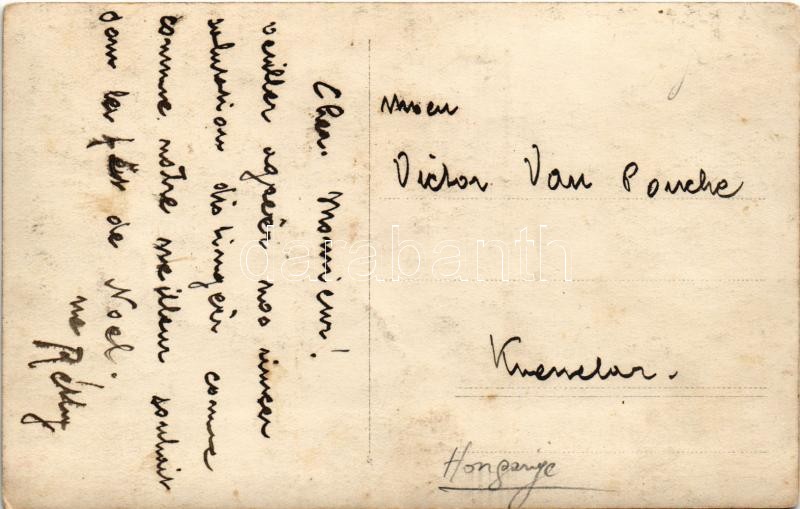 Cher. Monsieur!
veiller agreér nos sincer
salutation distingér comme
comme notre meilleur souhait
dans les fêt de Noel.
me Réthy
Victor Van Poucke
Knesselar.
Hongarije
darabanth